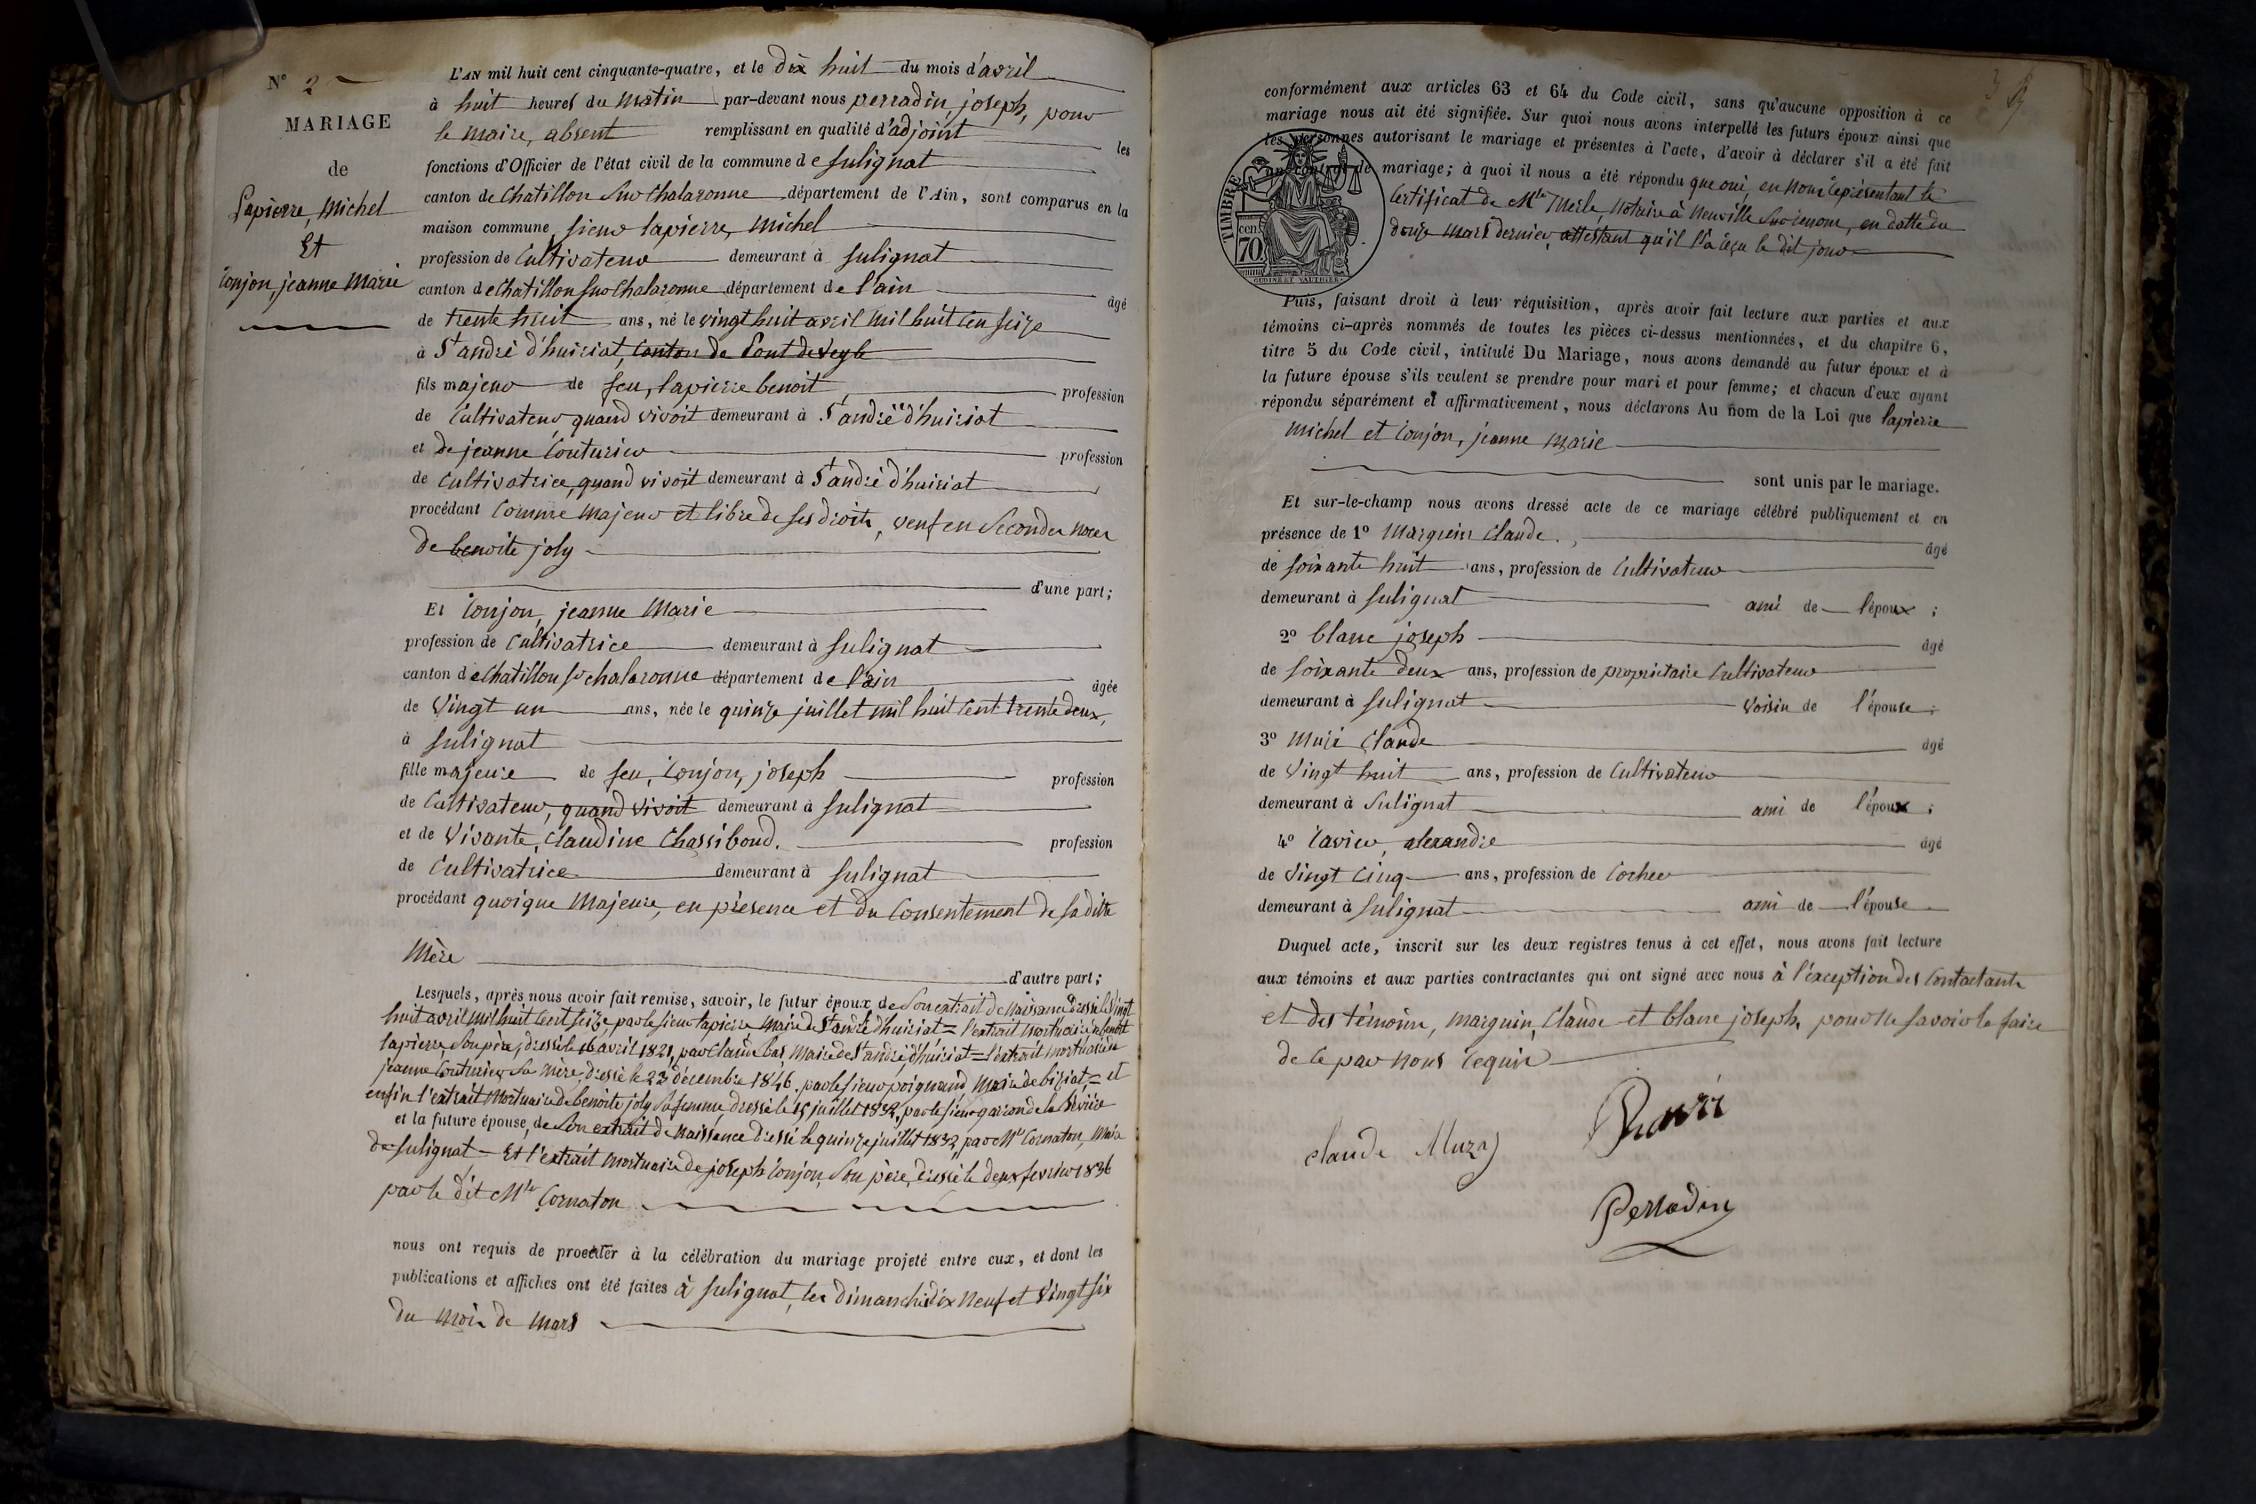 N° 2
MARIAGE
de
Lapierre, Michel
Et
Conjon, jeanne Marie
L'AN mil huit cent cinquante-quatre, et le dix huit du mois d'avril
à huit heures du matin par-devant nous perradin, joseph, pour
le maire, absent remplissant en qualité d'adjoint les
fonctions d'Officier de l'état civil de la commune de Sulignat
canton de Chatillon sur Chalaronne département de l'Ain, sont comparus en la
maison commune, sieur lapierre, Michel
profession de Cultivateur demeurant à Sulignat
canton de Chatillon sur Chalaronne département de l'ain âgé
de trente huit ans, né le vingt huit avril mil huit cen seize
à St andré d'huiriat, Canton de Pont de Veyle
fils majeur de feu, lapierre benoit, profession
de Cultivateur, quand vivoit demeurant à St andré d'huiriat
et de jeanne Couturier profession
de Cultivatrice, quand vivoit demeurant à St andré d'huiriat
procédant Comme majeur et libre de ses droits, veuf en Secondes noces
de benoite joly
d'une part;
Et Conjon, jeanne Marie
profession de Cultivatrice demeurant à Sulignat
canton de Chatillon sr chalaronne département de l'ain âgée
de Vingt un ans, née le quinze juillet mil huit Cent trente deux,
à Sulignat
fille majeure de feu, Conjon, joseph profession
de Cultivateur, quand vivoit demeurant à Sulignat
et de Vivante, Claudine Chassiboud. profession
de Cultivatrice demeurant à Sulignat
procédant quoique Majeure, en présence et du Consentement de sa dite
Mère
d'autre part;
Lesquels, après nous avoir fait remise, savoir, le futur époux de Son extrait de Naissance dressé le Vingt
huit avril mil huit Cent Seize par le sieur lapierre Maire de St andré d'huiriat = l'extrait Mortuaire de benoit
lapierre, Son père, dressé le 16 avril 1821, par Maire de St andré, d'huiriat = l'extrait mortuaire de
jeanne Couturier, Sa Mère, dressé le 23 décembre 1846. par le sieur poignand Maire de biziat, = et
enfin l'extrait Mortuaire de benoite joly Sa femme, dressé le 15 juillet 1832, par le sieur garron de la Bévière
et la future épouse, de Son extrait de Naissance dressé le quinze juillet 1832, par Mr Cornaton, Maire
de Sulignat – Et l'extrait Mortuaire de joseph Conjon, Son père, dressé le deux fevrier 1836
par le dit Mr Cornaton
nous ont requis de procéder à la célébration du mariage projeté entre eux, et dont les
publications et affiches ont été faites à Sulignat, les dimanches dix Neuf et Vingt six
du mois de mars
conformément aux articles 63 et 64 du Code civil, sans qu'aucune opposition à ce
mariage nous ait été signifiée. Sur quoi nous avons interpellé les futurs époux ainsi que
les personnes autorisant le mariage et présentes à l'acte, d'avoir à déclarer s'il a été fait
un contrat de mariage; à quoi il nous a été répondu que oui, en Nous représentant le
Certificat de Mtre Merle, Notaire à Neuville Sur renom, en datte du
douze Mars dernier, attestant qu'il l'a reçu le dit jour
TIMBRE
70
Puis, faisant droit à leur réquisition, après avoir fait lecture aux parties et aux
témoins ci-après nommés de toutes les pièces ci-dessus mentionnées, et du chapitre 6,
titre 5 du Code civil, intitulé Du Mariage, nous avons demandé au futur époux et à
la future épouse s'ils veulent se prendre pour mari et pour femme; et chacun d'eux ayant
répondu séparément et affirmativement, nous déclarons Au nom de la Loi que lapierre
Michel et Conjon, jeanne Marie
sont unis par le mariage.
Et sur-le-champ nous avons dressé acte de ce mariage célébré publiquement et en
présence de 1° Marguin Claude. âgé
de Soixante huit ans, profession de Cultivateur
demeurant à Sulignat ami de l'époux;
2° blanc joseph âgé
de Soixante deux ans, profession de propriétaire Cultivateur
demeurant à Sulignat Voisin de l'épouse;
3° Muzi Claude âgé
de Vingt huit ans, profession de Cultivateur
demeurant à Sulignat ami de l'époux;
4° alexandre âgé
de Vingt Cinq ans, profession de Cocher
demeurant à Sulignat ami de l'épouse
Duquel acte, inscrit sur les deux registres tenus à cet effet, nous avons fait lecture
aux témoins et aux parties contractantes qui ont signé avec nous à l'exception des Contactants
et des témoins, Marguin, Claude et blanc joseph, pour Ne savoir le faire
de Ce par nous requis
claude Muzy
Perradin